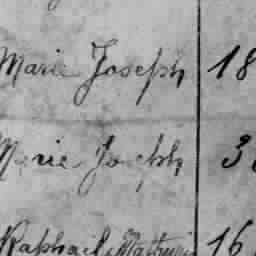 Marie Joseph 18
Marie Joseph 3
Raphael Mathurin 16